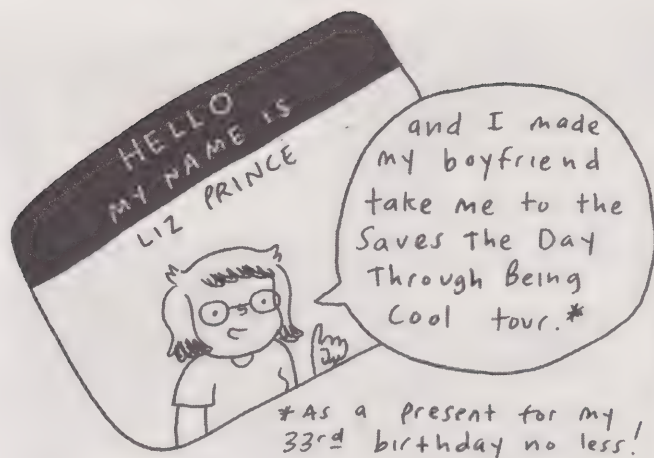 HELLO
MY NAME IS
LIZ PRINCE
and I made
my boyfriend
take me to the
Saves The Day
Through Being
Cool tour.*
*As a present for my
33rd birthday no less!